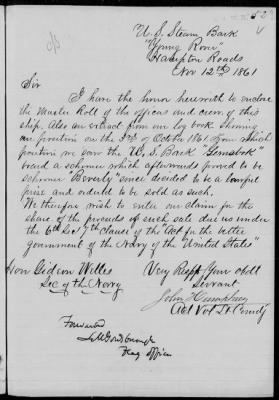 52
U.S. Steam Bark
"Young Rover"
Hampton Roads
Nov 12th 1861
Sir
I have the honor herewith to enclose
the Muster Roll of the officers and crew of this
ship. Also an extract from our log book showing
our position on the 3rd of October 1861 from which
position we saw the U.S. Bark "Gemsbok"
board a schooner which afterwards proved to be
schooner "Beverly" since decided to be a lawful
prize and ordered to be sold as such.
We therefore wish to enter our claim for the
share of the proceeds of such sale due us under
the 6th Sec 7th clause of the "Act for the better
government of the Navy of the "United States"
Hon Gideon Welles
Sec of the Navy
Very Respy Your obdt
Servant
John Humphrey
Act Vol Lt Comdg
Forwarded
L M Goldsborough
Flag Officer